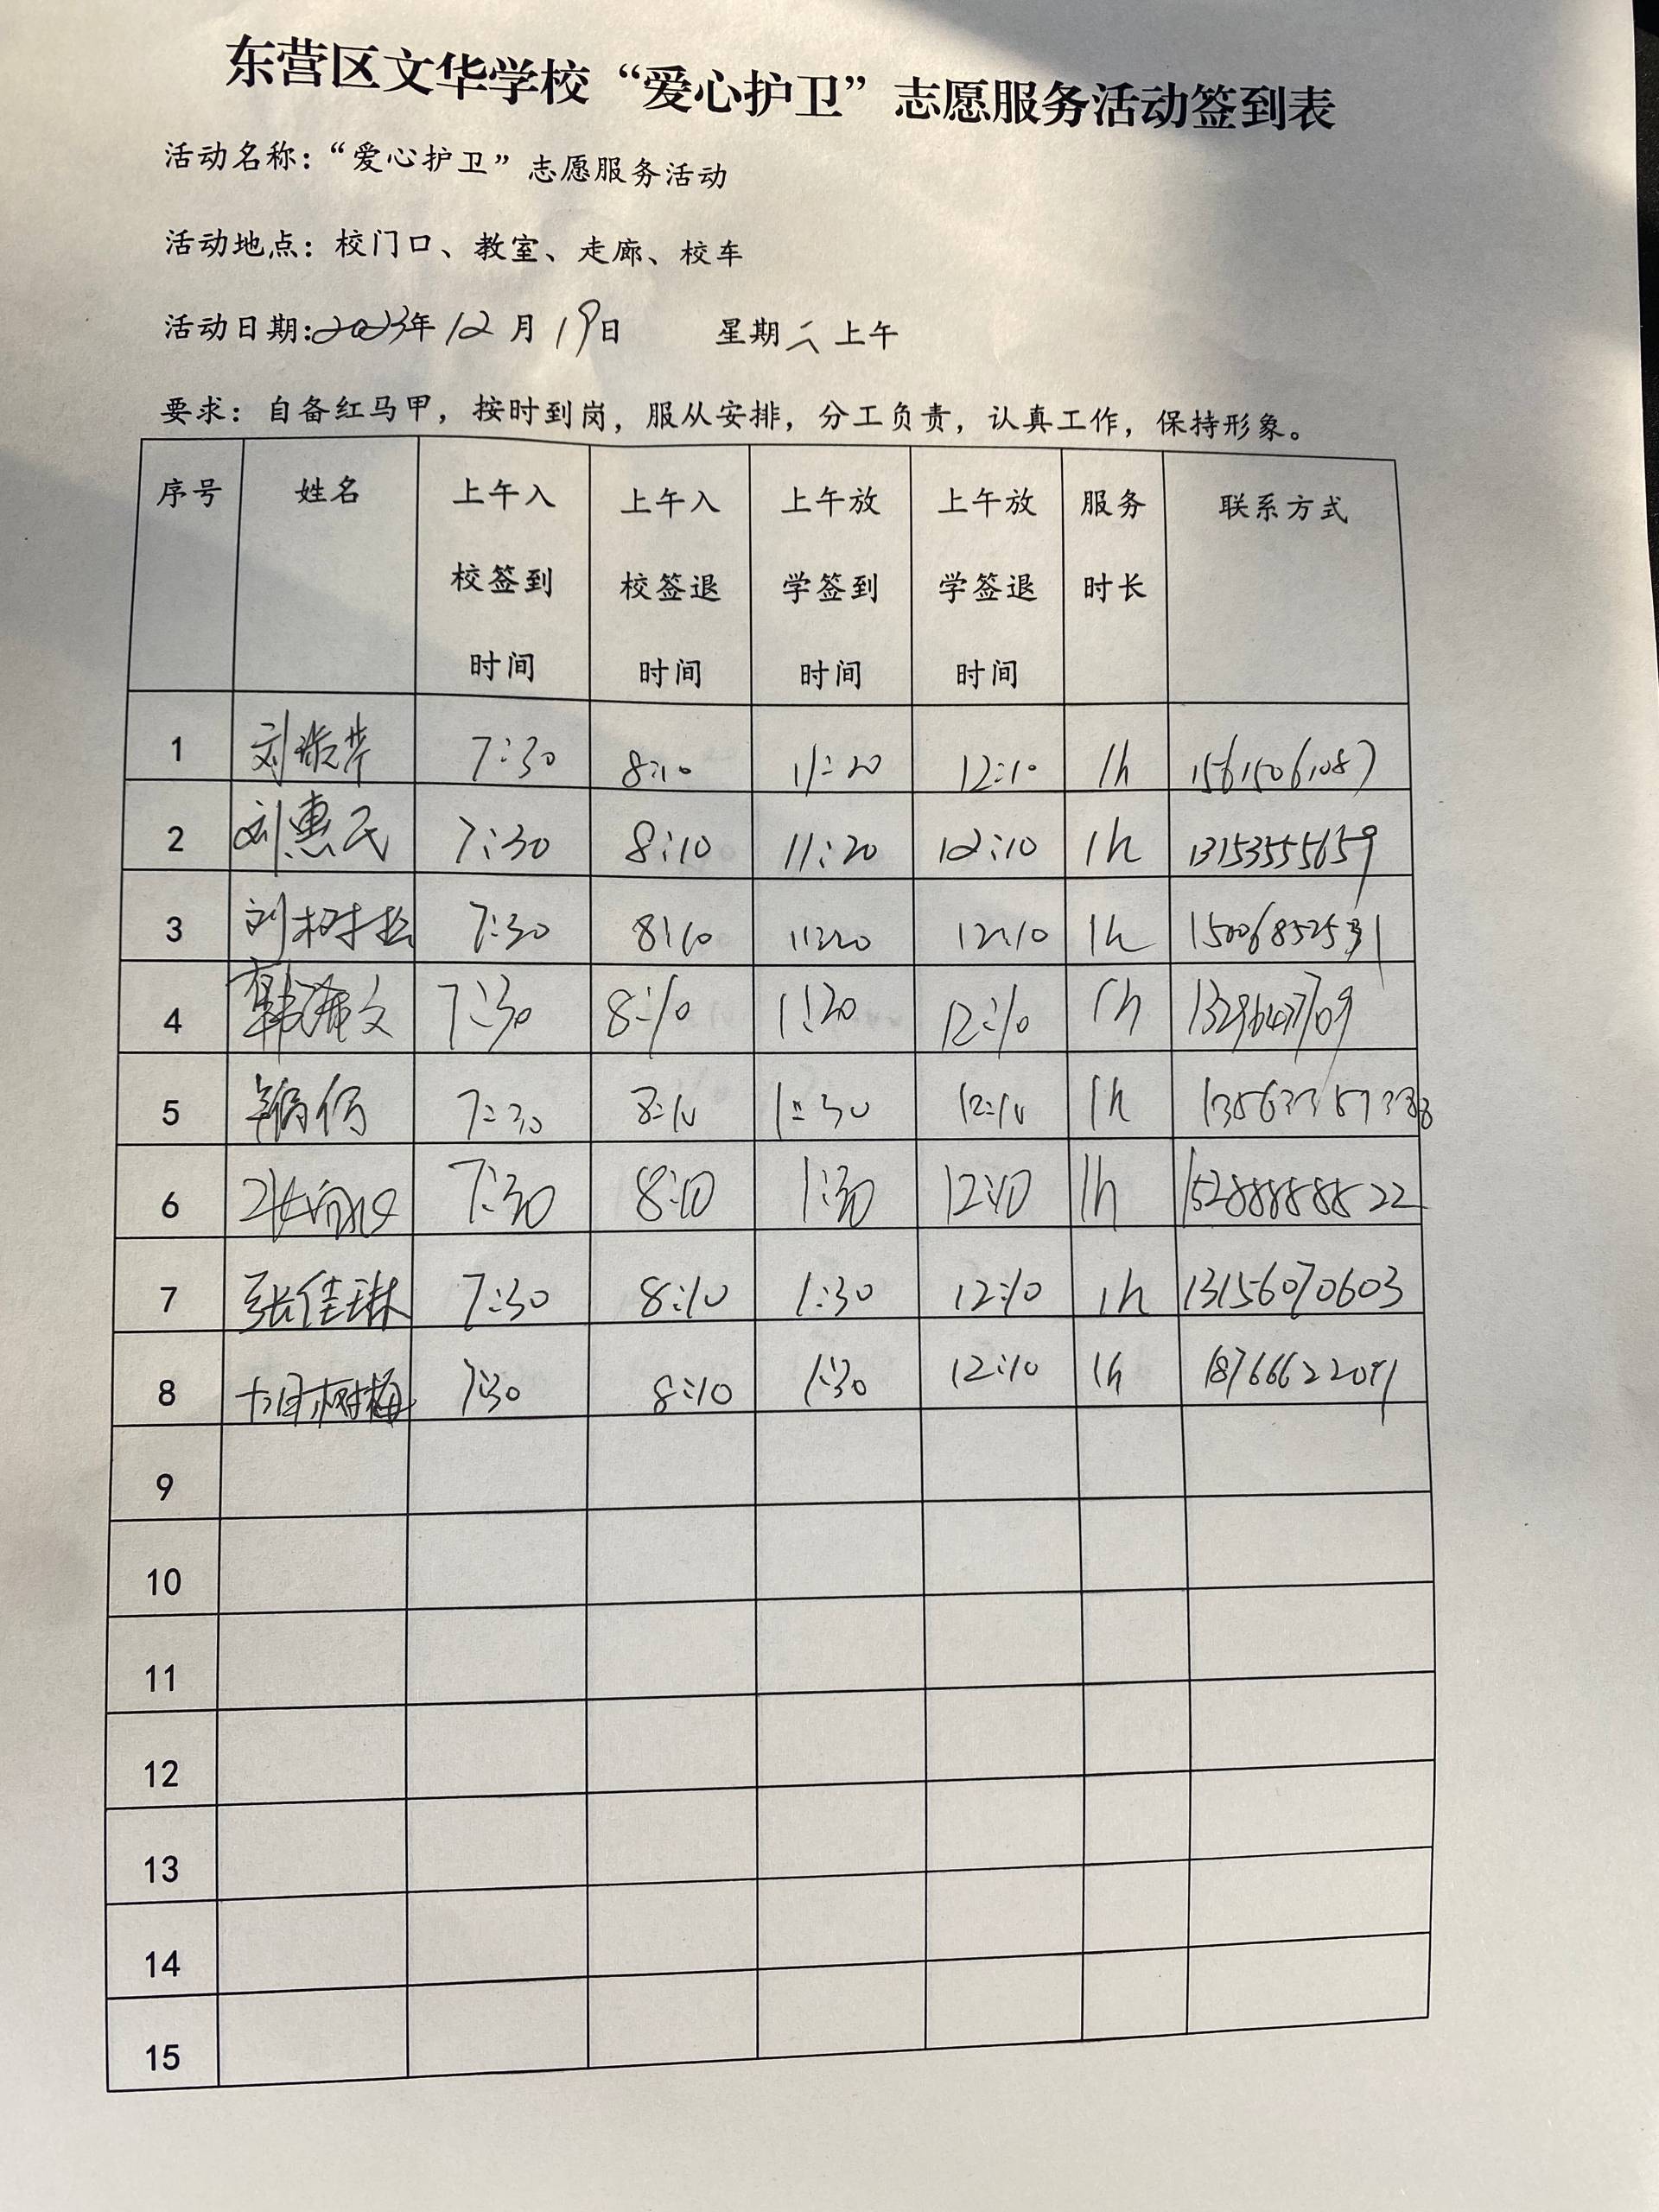 东营区文华学校“爱心护卫”志愿服务活动签到表
活动名称：“爱心护卫”志愿服务活动
活动地点：校门口、教室、走廊、校车
活动日期:2023年12月19日 星期二 上午
要求：自备红马甲，按时到岗，服从安排，分工负责，认真工作，保持形象。
序号 姓名 上午入校签到时间 上午入校签退时间 上午放学签到时间 上午放学签退时间 服务时长 联系方式
1 7:30 8:10 11:20 12:10 1h 15615061087
2 刘惠民 7:30 8:10 11:20 12:10 1h 13153555659
3 刘树松 7:30 8:10 11:20 12:10 1h 15006852531
4 7:30 8:10 1:20 12:10 1h
5 7:30 8:10 1:30 12:10 1h
6 7:30 8:10 1:30 12:10 1h 15288888822
7 张佳琳 7:30 8:10 1:30 12:10 1h 13156070603
8 7:30 8:10 1:30 12:10 1h
9
10
11
12
13
14
15